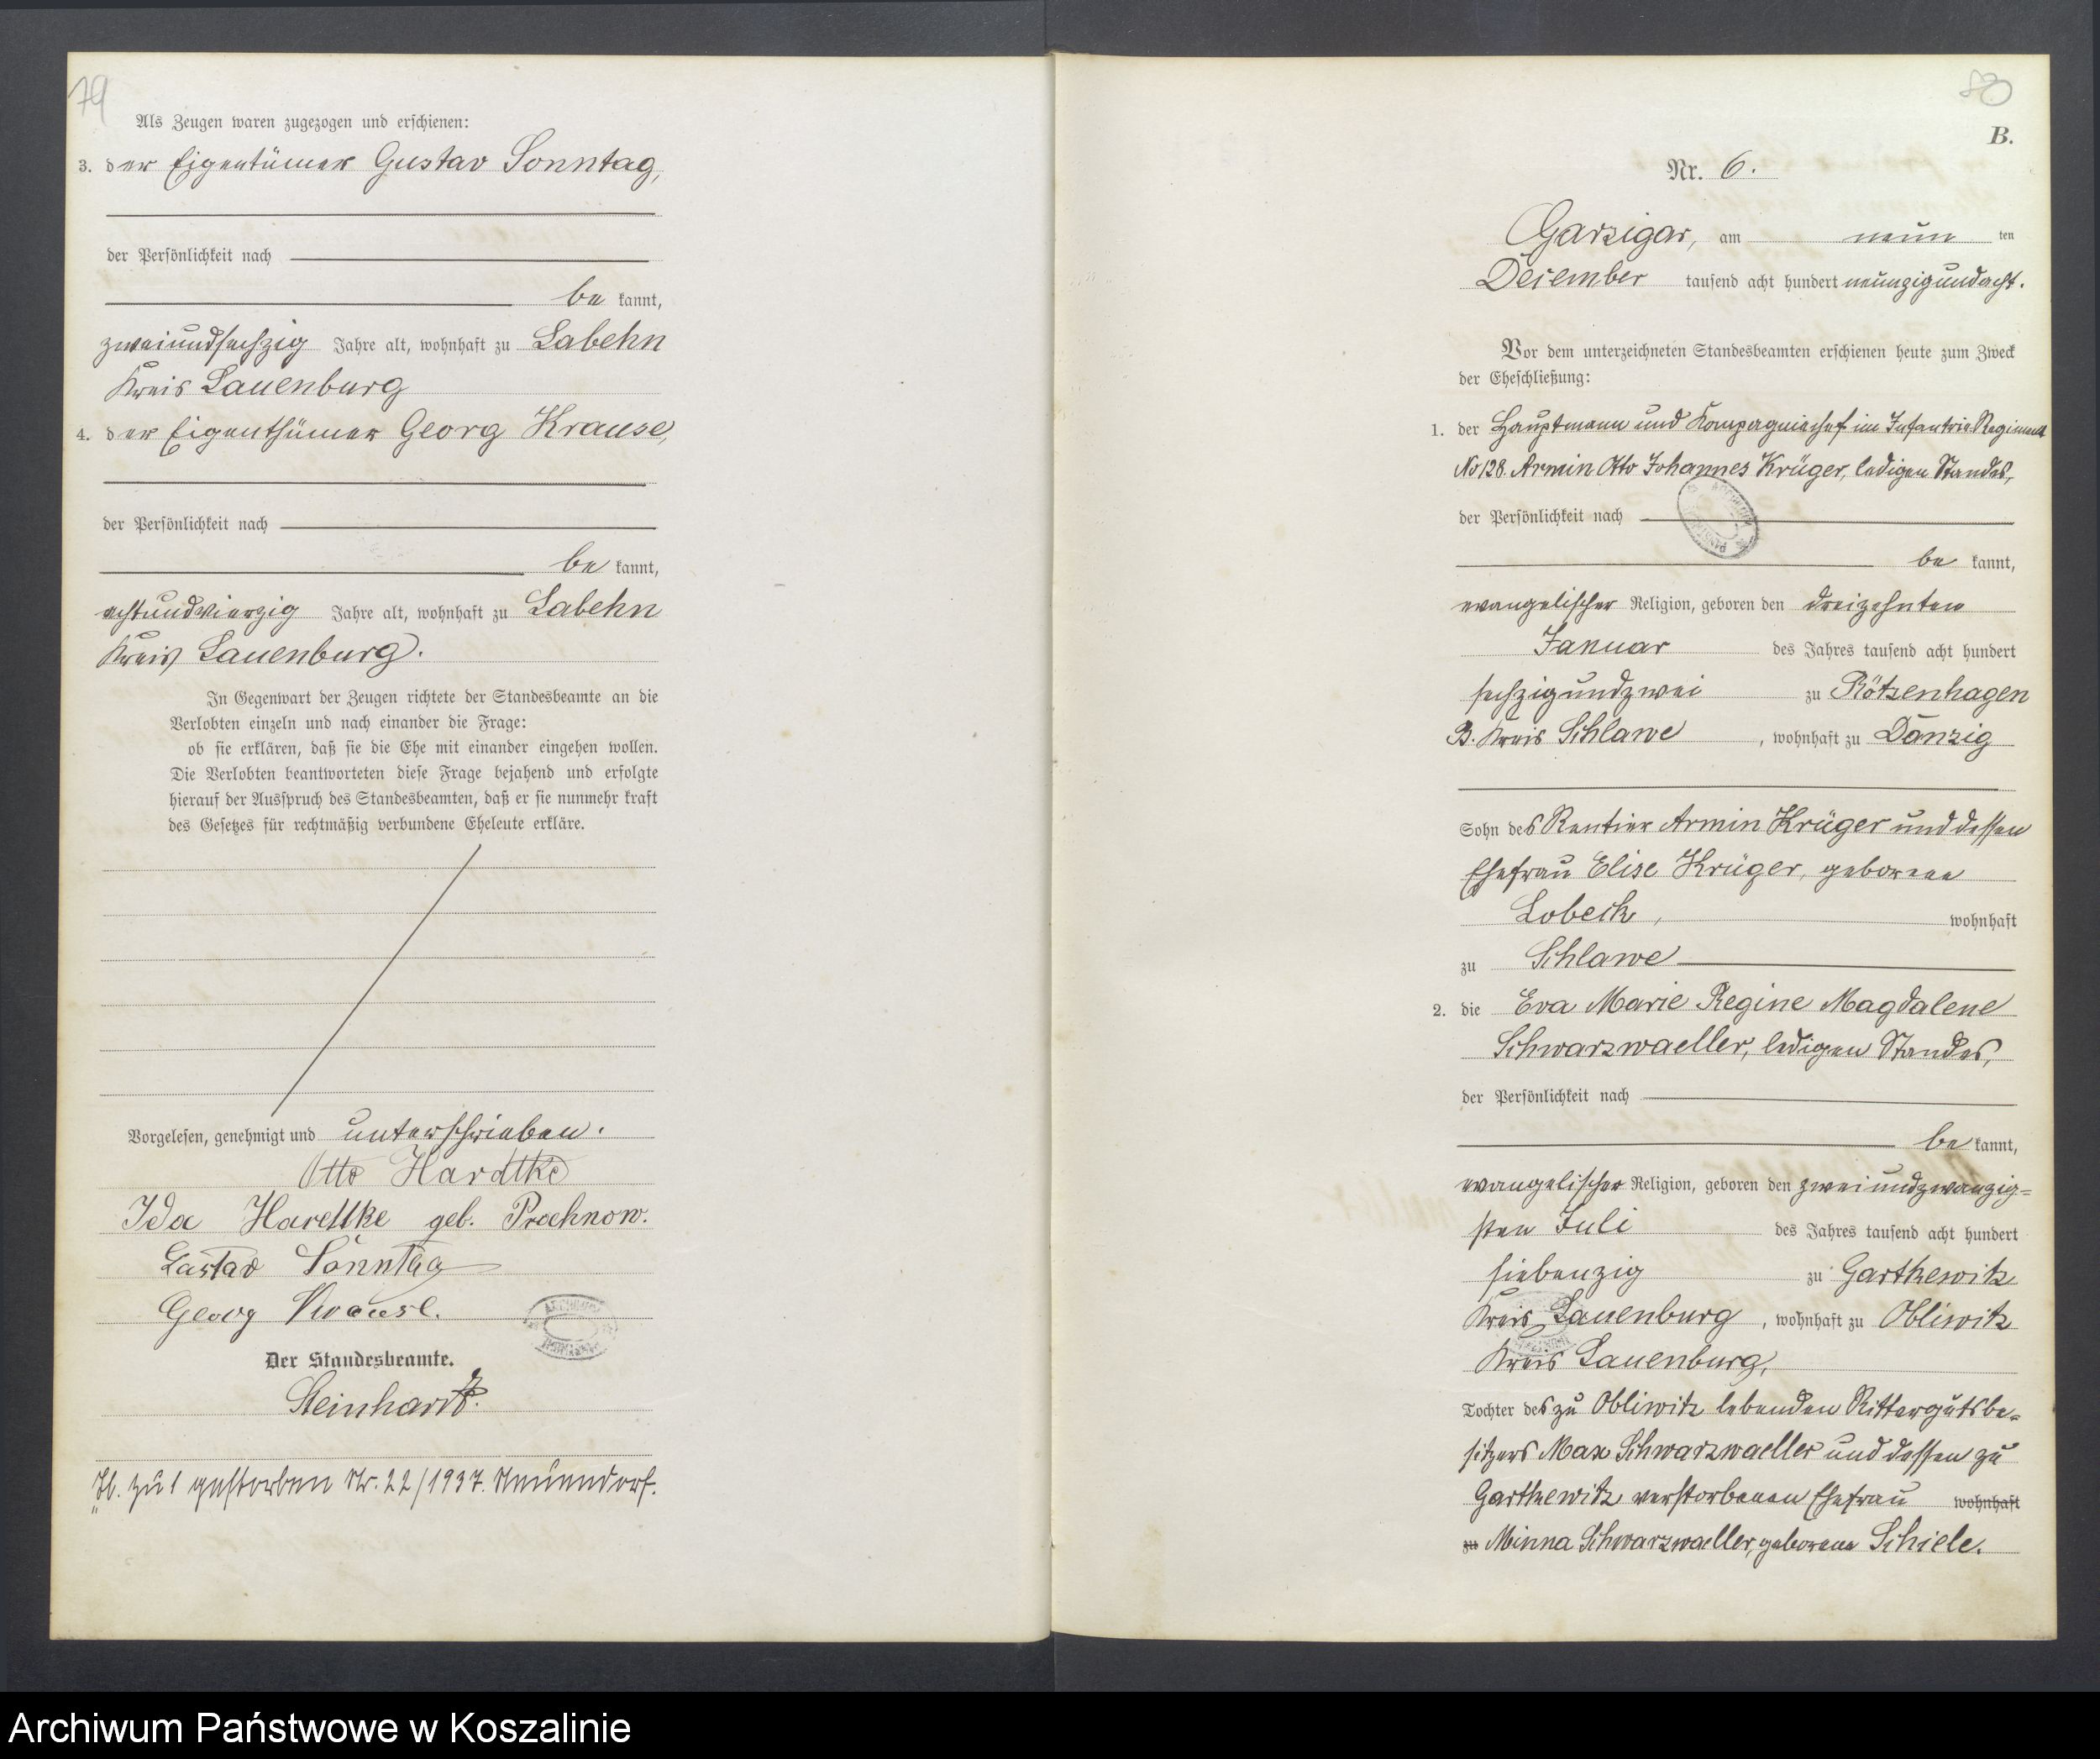 79
Als Zeugen waren zugezogen und erschienen:
3. der Eigentümer Gustav Sonntag,
der Persönlichkeit nach
be kannt,
zweiundsechzig Jahre alt, wohnhaft zu Labehn
Kreis Lauenburg
4. der Eigenthümer Georg Krause,
der Persönlichkeit nach
be kannt,
achtundvierzig Jahre alt, wohnhaft zu Labehn
Kreis Lauenburg.
In Gegenwart der Zeugen richtete der Standesbeamte an die
Verlobten einzeln und nach einander die Frage:
ob sie erklären, daß sie die Ehe mit einander eingehen wollen.
Die Verlobten beantworteten diese Frage bejahend und erfolgte
hierauf der Ausspruch des Standesbeamten, daß er sie nunmehr kraft
des Gesetzes für rechtmäßig verbundene Eheleute erkläre.
Vorgelesen, genehmigt und unterschrieben.
Otto Hardtke
Ida Hardtke geb. Prochnow.
Gustav Sonntag
Georg Krause.
Der Standesbeamte.
Steinhardt.
zu 1 gestorben Nr. 22/1937.
80
B.
Nr. 6.
Garzigar, am neun ten
Dezember tausend acht hundert neunzigundacht.
Vor dem unterzeichneten Standesbeamten erschienen heute zum Zweck
der Eheschließung:
1. der Hauptmann und Kompagniechef im Infantrie Regiment
No 128 Armin Otto Johannes Krüger, ledigen Standes,
der Persönlichkeit nach
be kannt,
evangelischer Religion, geboren den dreizehnten
Januar des Jahres tausend acht hundert
sechzigundzwei zu Rötzenhagen
B. Kreis Schlawe, wohnhaft zu Danzig
Sohn des Rentier Armin Krüger und dessen
Ehefrau Elise Krüger, geborene
Lobeck, wohnhaft
zu Schlawe
2. die Eva Marie Regine Magdalene
Schwarzwaeller, ledigen Standes,
der Persönlichkeit nach
be kannt,
evangelischer Religion, geboren den zweiundzwanzig=
sten Juli des Jahres tausend acht hundert
siebenzig zu Garthkewitz
Kreis Lauenburg, wohnhaft zu Obliwitz
Kreis Lauenburg,
Tochter des zu Obliwitz lebenden Rittergutsbe=
sitzers Max Schwarzwaeller und dessen zu
Garthkewitz verstorbenen Ehefrau wohnhaft
zu Minna Schwarzwaeller, geborene Schiele.
Archiwum Państwowe w Koszalinie